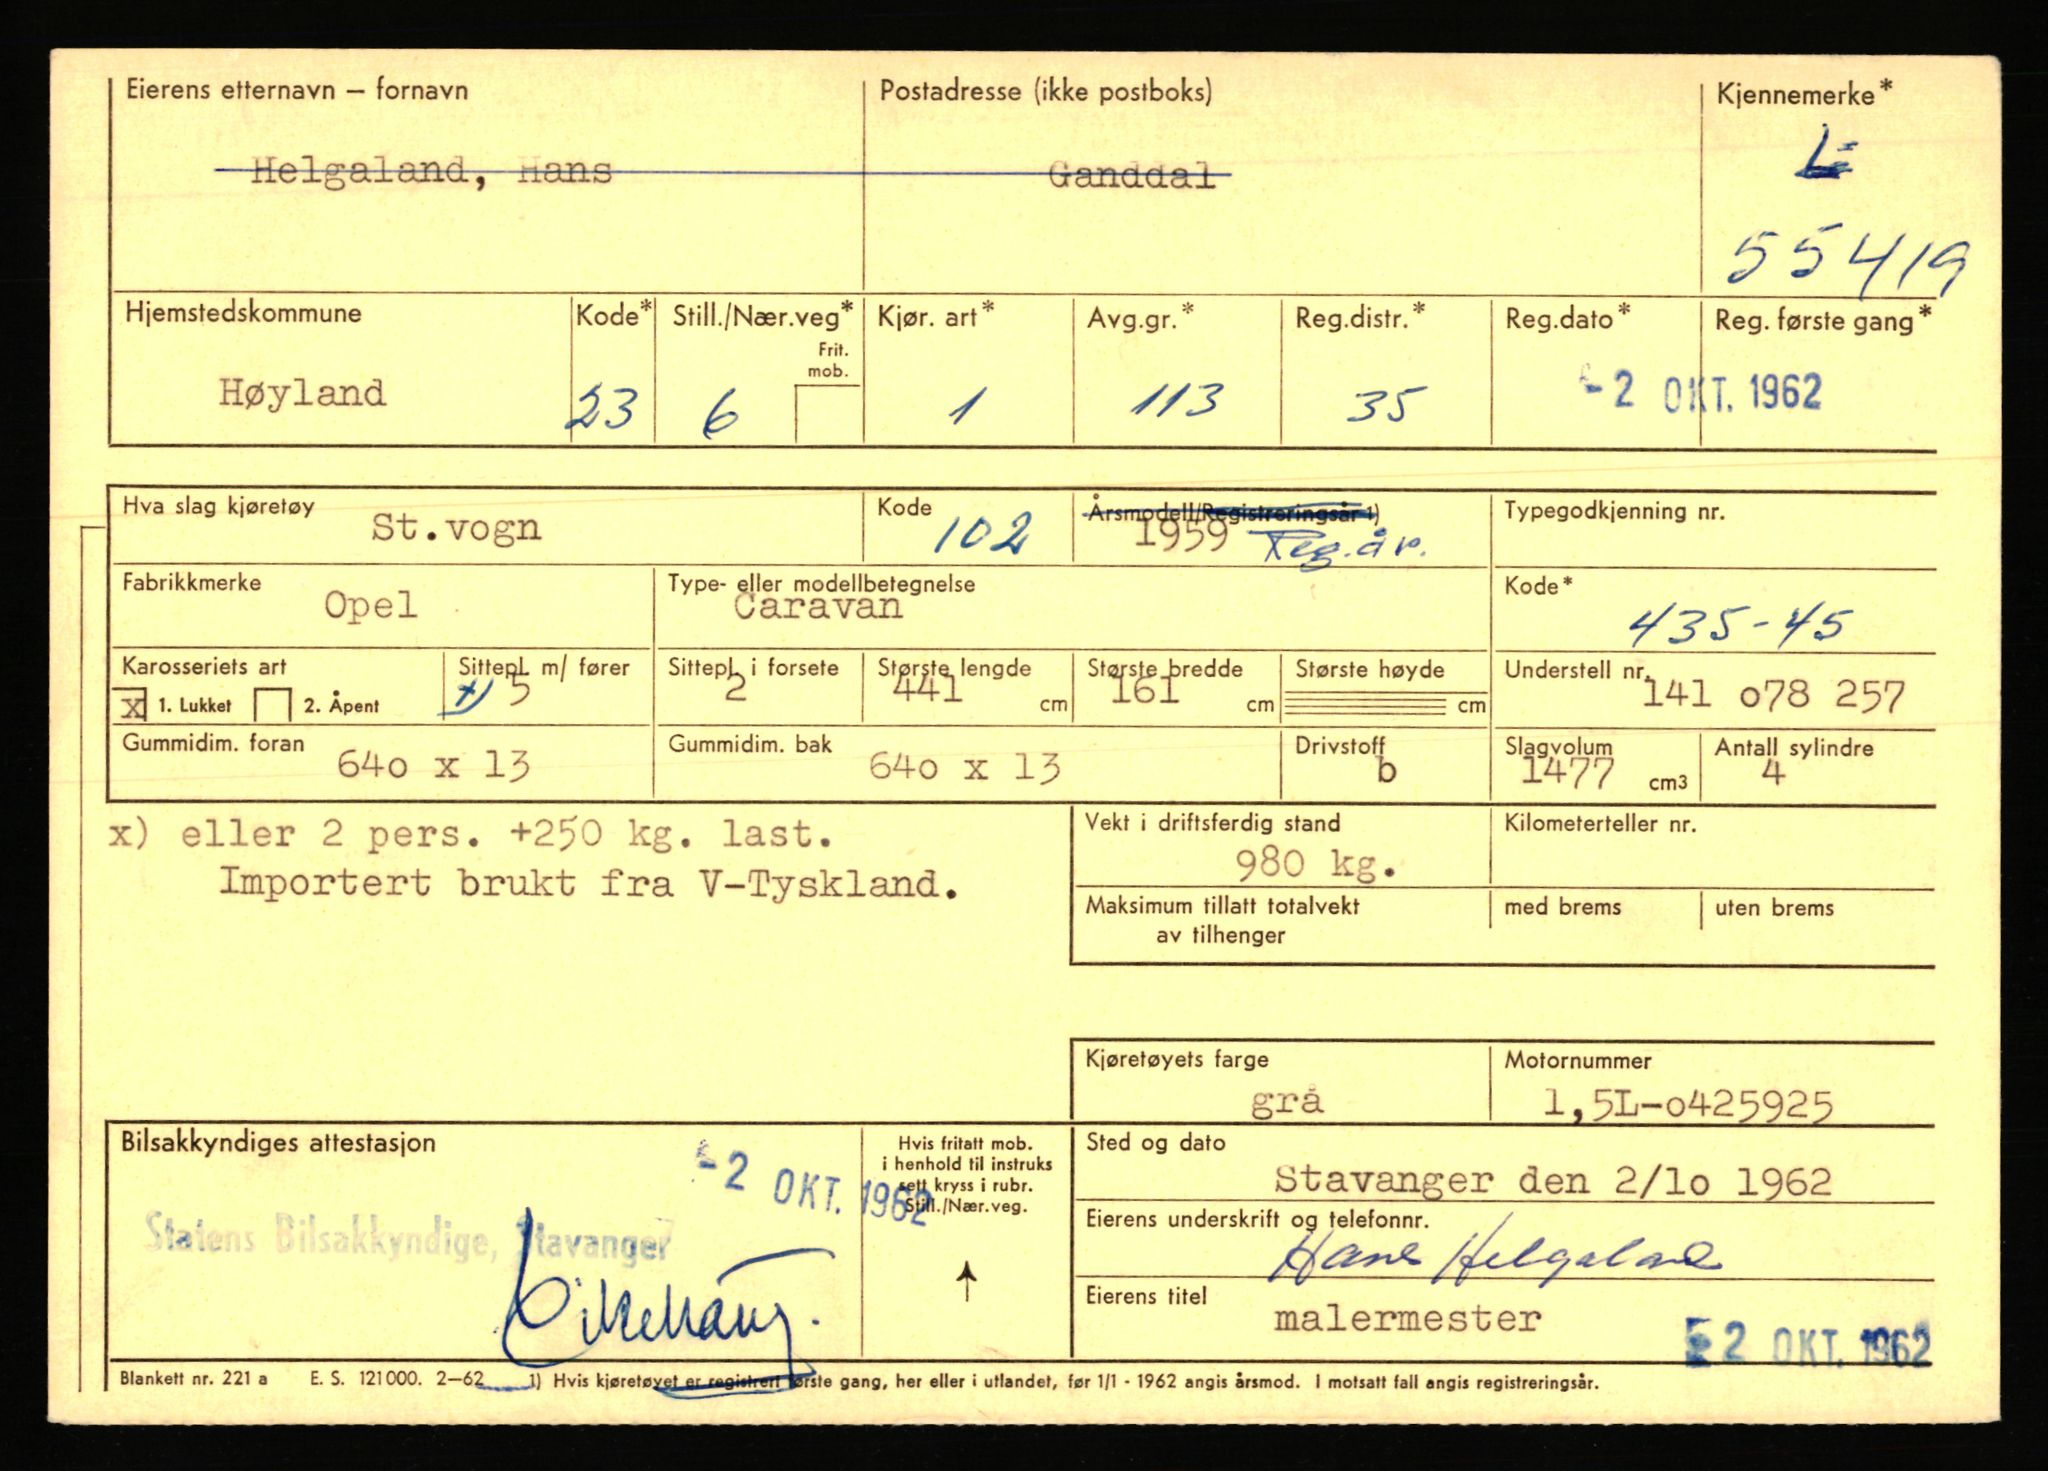 Eierens etternavn – fornavn Postadresse (ikke postboks) Kjennemerke*
Helgaland, Hans Ganddal L
55419
Hjemstedskommune Kode* Still./Nær.veg* Kjør. art* Avg.gr.* Reg.distr.* Reg.dato* Reg. første gang*
Frit. mob.
Høyland 23 6 1 113 35 -2 OKT. 1962
Hva slag kjøretøy Kode Årsmodell/Registreringsår 1) Typegodkjenning nr.
St.vogn 102 1959 Reg.år.
Fabrikkmerke Type- eller modellbetegnelse Kode*
Opel Caravan 435-45
Karosseriets art Sittepl. m/ fører Sittepl. i forsete Største lengde Største bredde Største høyde Understell nr.
x 1. Lukket 2. Åpent x) 5 2 441 cm 161 cm cm 141 o78 257
Gummidim. foran Gummidim. bak Drivstoff Slagvolum Antall sylindre
64o x 13 64o x 13 b 1477 cm3 4
x) eller 2 pers. +250 kg. last. Vekt i driftsferdig stand Kilometerteller nr.
Importert brukt fra V-Tyskland. 980 kg.
Maksimum tillatt totalvekt med brems uten brems
av tilhenger
Kjøretøyets farge Motornummer
grå 1,5L-o425925
Bilsakkyndiges attestasjon Hvis fritatt mob. Sted og dato
i henhold til instruks
sett kryss i rubr.
Still./Nær.veg.
-2 OKT. 1962 Stavanger den 2/1o 1962
Statens Bilsakkyndige, Stavanger Eierens underskrift og telefonnr.
Hans Helgaland
Eierens titel
malermester -2 OKT. 1962
Blankett nr. 221 a E. S. 121000. 2–62 1) Hvis kjøretøyet er registrert første gang, her eller i utlandet, før 1/1 - 1962 angis årsmod. I motsatt fall angis registreringsår.